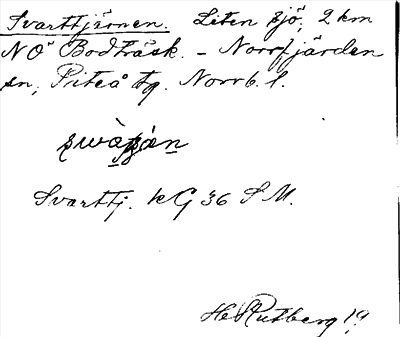 Svarttjärnen. Liten sjö, 2 km
NO Bodträsk. – Norrfjärden
sn, Piteå tg. Norrb. l.
Svarttj. kG 36 S M.
H. Rutberg 19